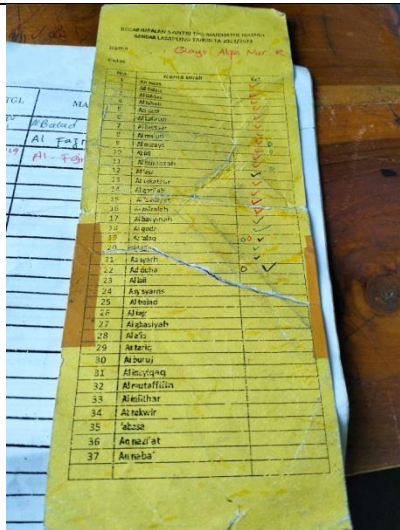 TGL
MA
Albalad
Al Fajr
Al-Fajr
KELAS HAFALAN SANTRI TPQ
BANDAR LAMPUNG TAHUN TA 2023/2024
Nama
Kelas
No Nama Surah Ket
1 An naas
2 Al falaq
3 Al ikhlas
4 Al lahab
5 An nasr
6 Al kafirun
7 Al kautsar
8 Al ma'un
9 Al qurays
10 Al fil
11 Al humazah
12 Al 'asr
13 At takatsur
14 Al qari'ah
15 Al 'adiyat
16 Al zalzalah
17 Al bayyinah
18 Al qadr
19 Al 'alaq
20
21 As syarh
22 Ad duha
23 Al lail
24 Asy syams
25 Al balad
26 Al fajr
27 Al ghasiyah
28 Al a'la
29 At tariq
30 Al buruj
31 Al insyiqaq
32 Al mutaffifin
33 Al infithar
34 At takwir
35 'abasa
36 An nazi'at
37 An naba'